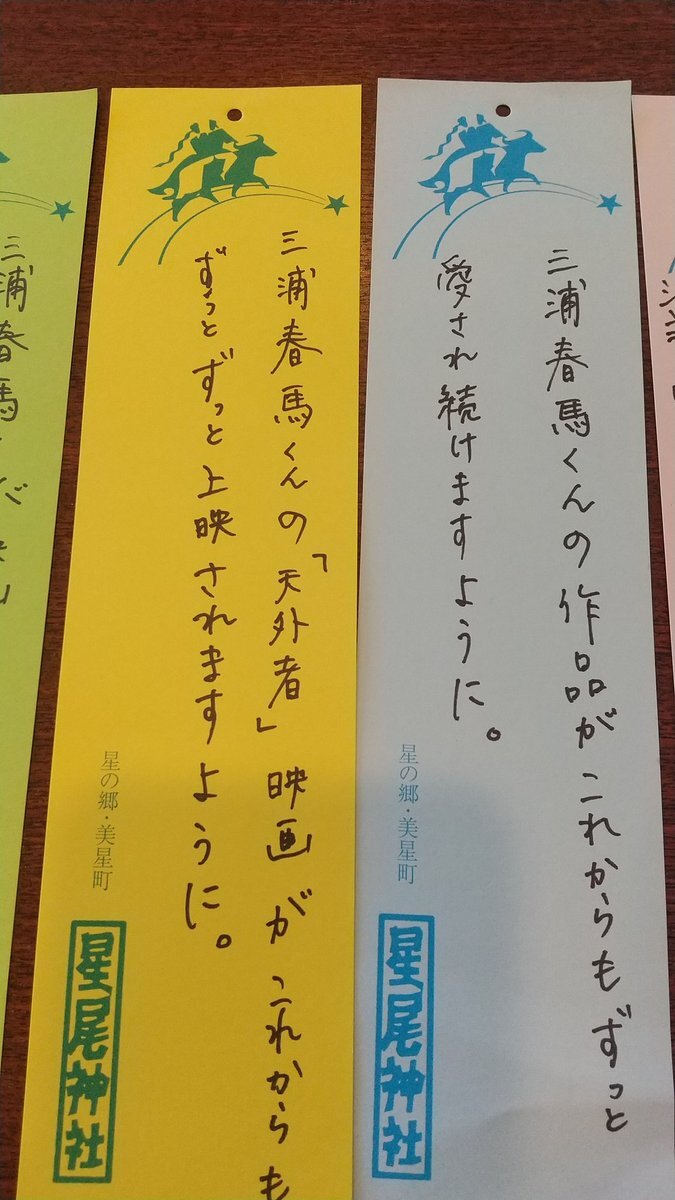 三浦春馬くんの作品がこれからもずっと
愛され続けますように。
星の郷・美星町
星尾神社
三浦春馬くんの「天外者」映画がこれからも
ずっとずっと上映されますように。
星の郷・美星町
星尾神社
三浦春馬